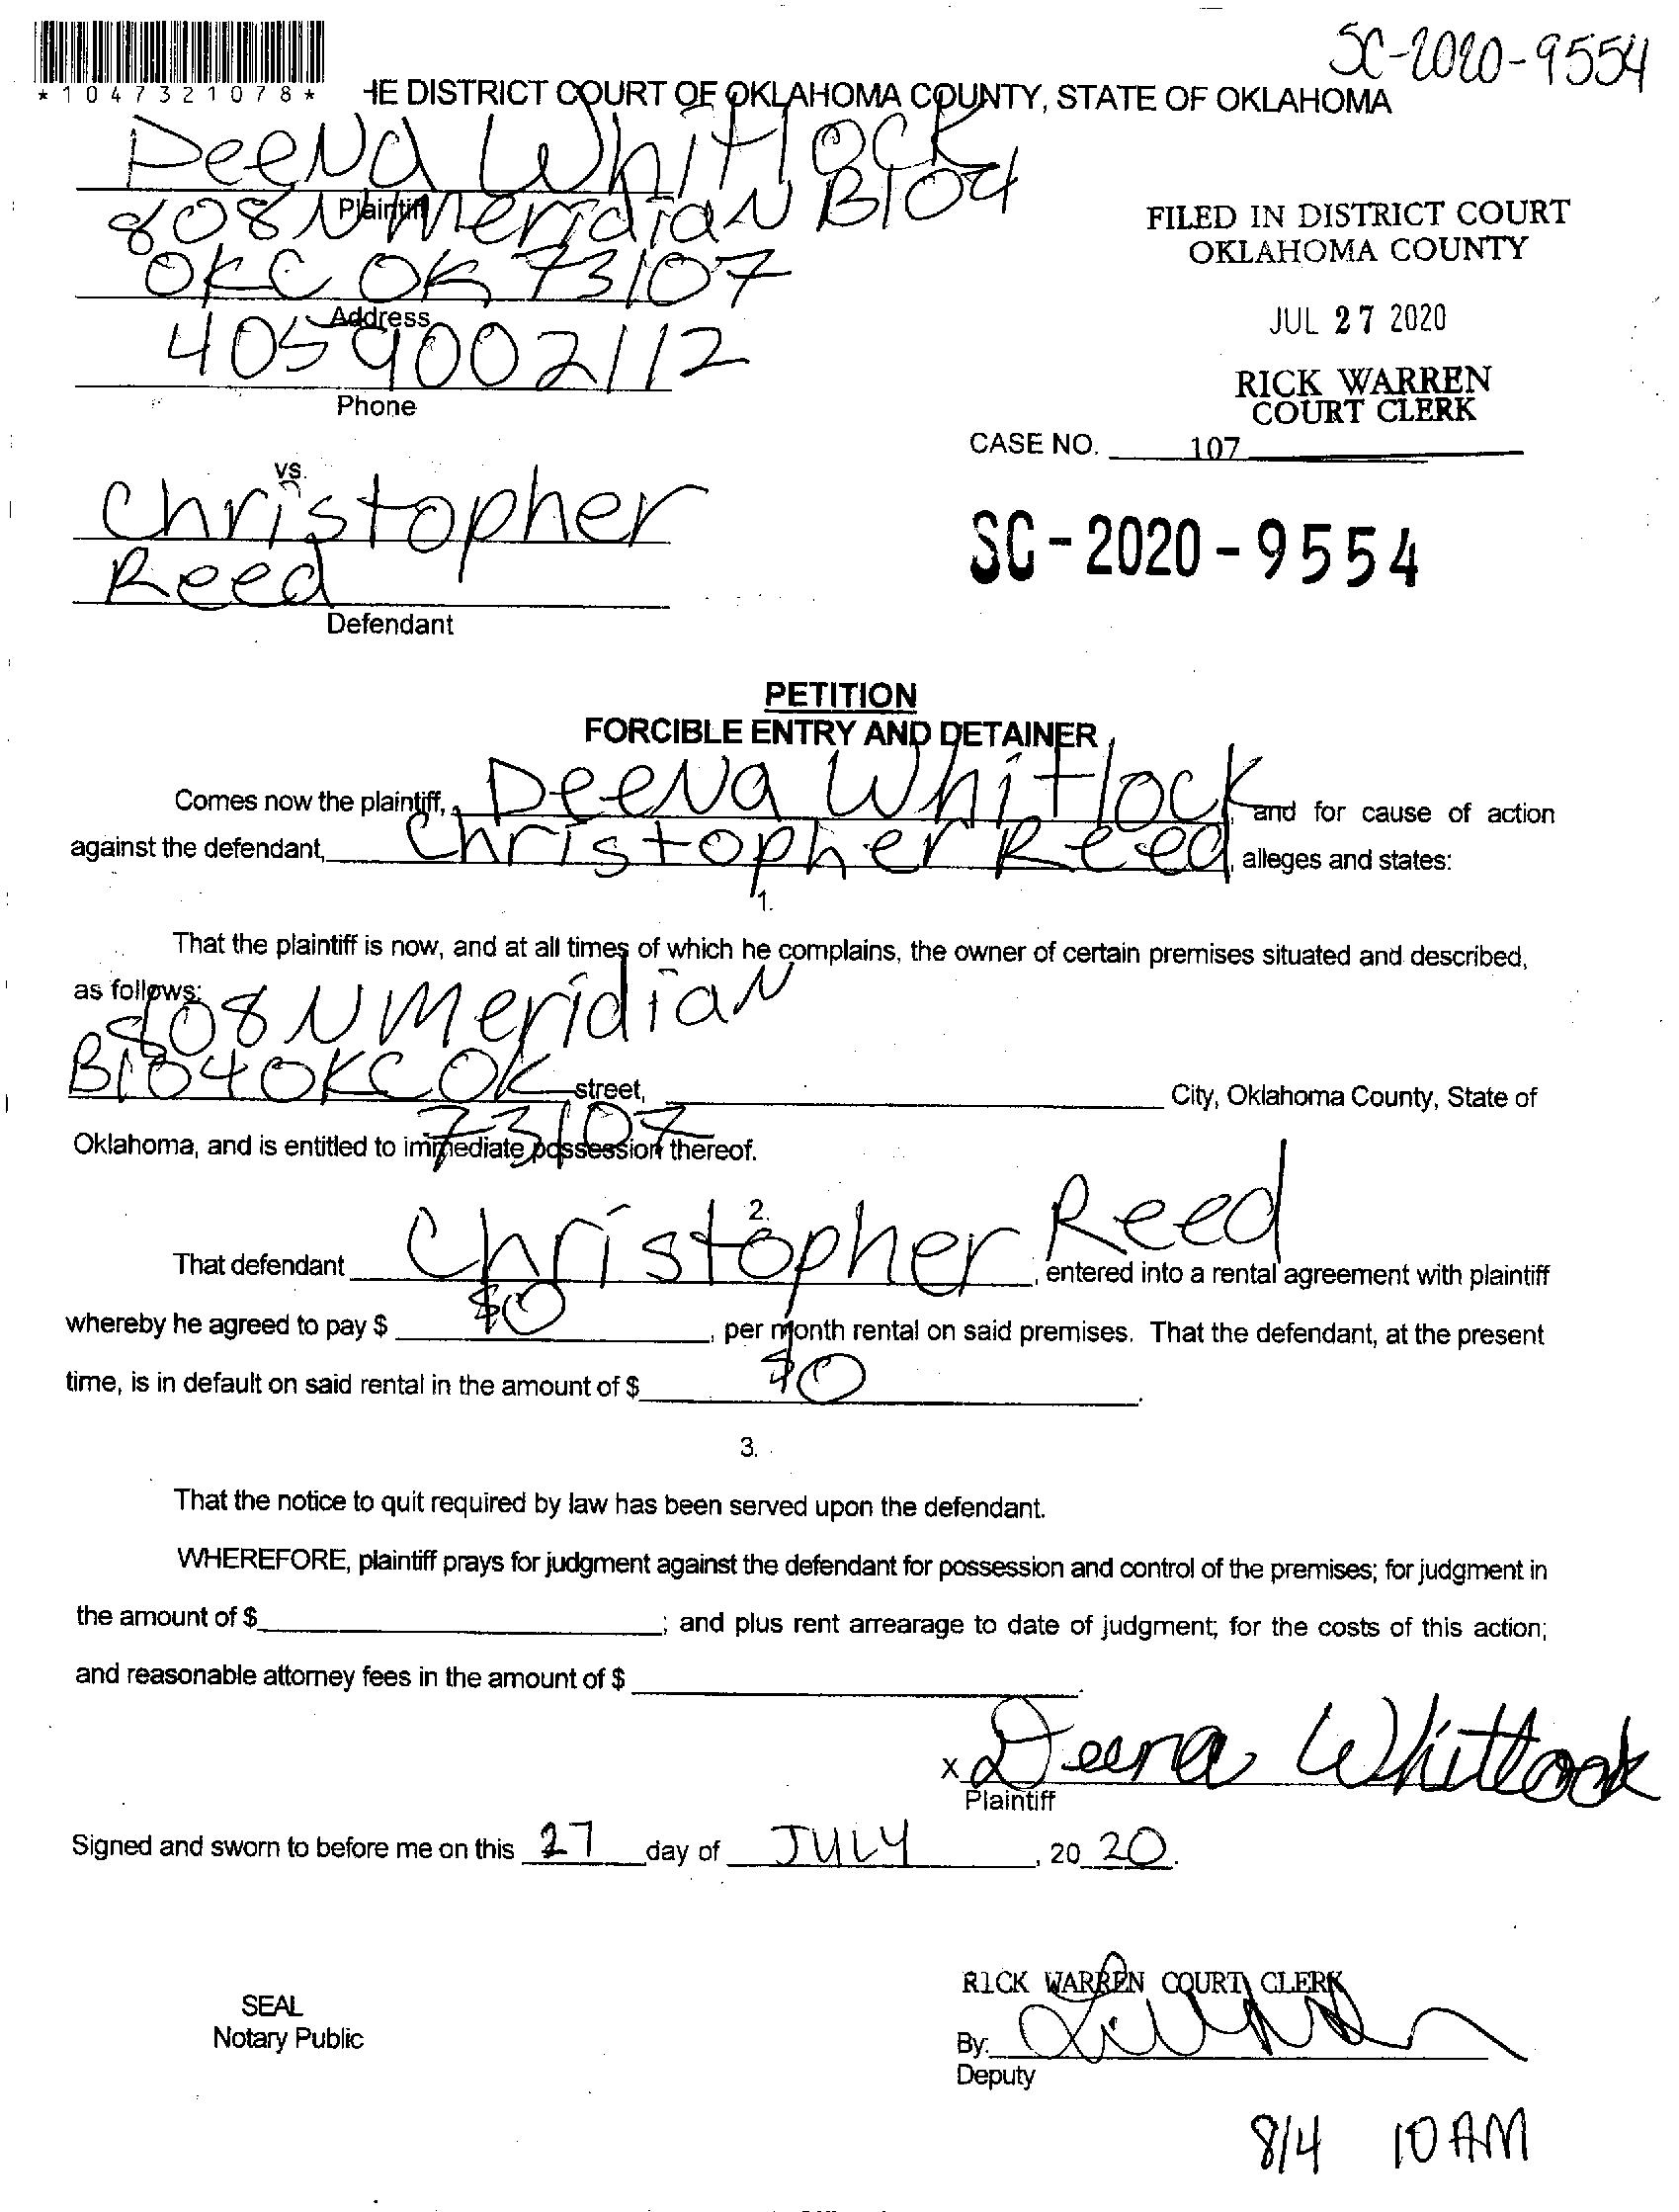 SC-2020-9554
*1047321078*
HE DISTRICT COURT OF OKLAHOMA COUNTY, STATE OF OKLAHOMA
DeeNa Whitlock
Plaintiff
808 N Meridian B104
OKC OK 73107
Address
4059002112
Phone
FILED IN DISTRICT COURT
OKLAHOMA COUNTY
JUL 27 2020
RICK WARREN
COURT CLERK
CASE NO. 107
vs.
Christopher
Reed
Defendant
SC-2020-9554
PETITION
FORCIBLE ENTRY AND DETAINER
Comes now the plaintiff, DeeNa Whitlock, and for cause of action
against the defendant, Christopher Reed, alleges and states:
1.
That the plaintiff is now, and at all times of which he complains, the owner of certain premises situated and described,
as follows: 808 N Meridian
B104 OKC OK street, City, Oklahoma County, State of
73107
Oklahoma, and is entitled to immediate possession thereof.
2.
That defendant Christopher Reed, entered into a rental agreement with plaintiff
whereby he agreed to pay $ $0, per month rental on said premises. That the defendant, at the present
time, is in default on said rental in the amount of $ $0.
3.
That the notice to quit required by law has been served upon the defendant.
WHEREFORE, plaintiff prays for judgment against the defendant for possession and control of the premises; for judgment in
the amount of $ ; and plus rent arrearage to date of judgment; for the costs of this action;
and reasonable attorney fees in the amount of $ .
x Deena Whitlock
Plaintiff
Signed and sworn to before me on this 27 day of JULY, 20 20.
RICK WARREN COURT CLERK
SEAL
Notary Public
By:
Deputy
8/4 10 AM